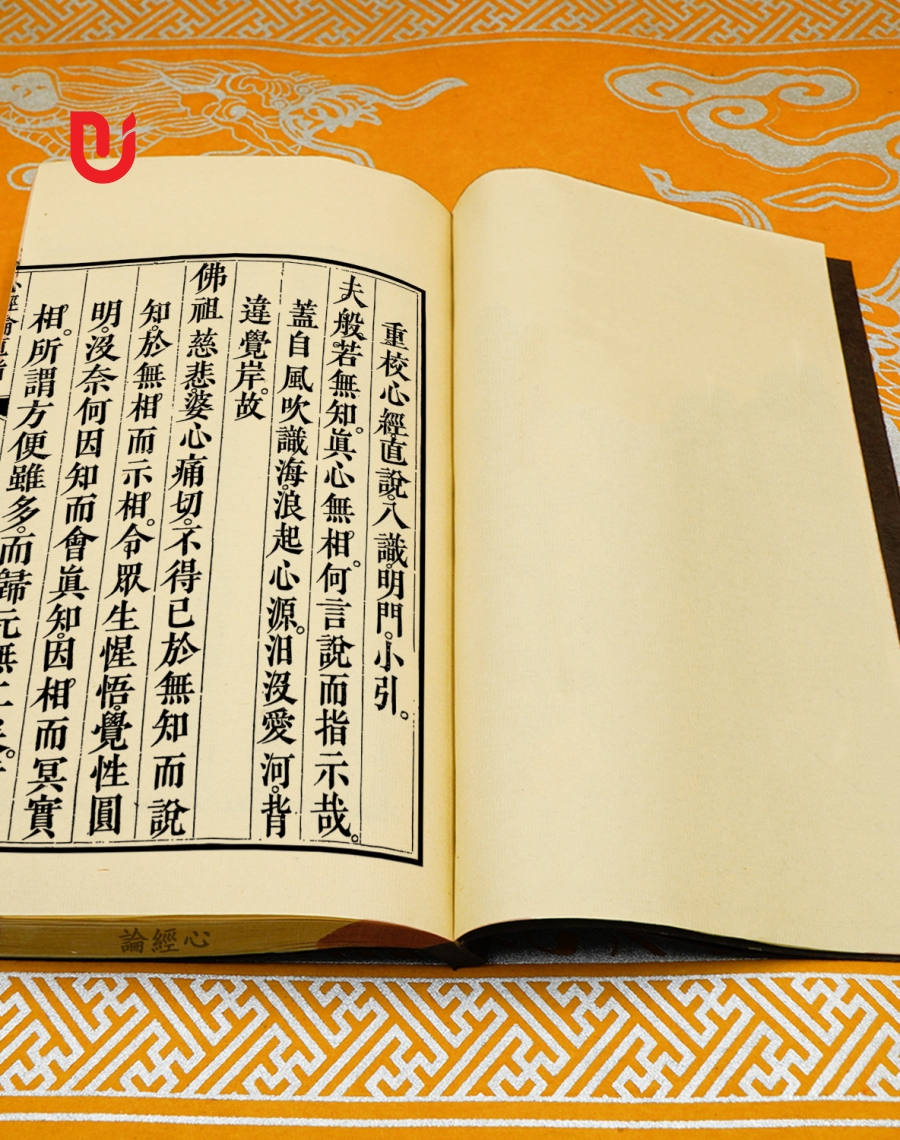 重校心經直說八識明門小引。
夫般若無知。眞心無相。何言說而指示哉。
蓋自風吹識海。浪起心源。汨沒愛河。背
違覺岸。故
佛祖慈悲。婆心痛切。不得已於無知而說
知。於無相而示相。令眾生惺悟。覺性圓
明。沒奈何因知而會眞知。因相而冥實
相。所謂方便雖多。而歸元無二
心經論